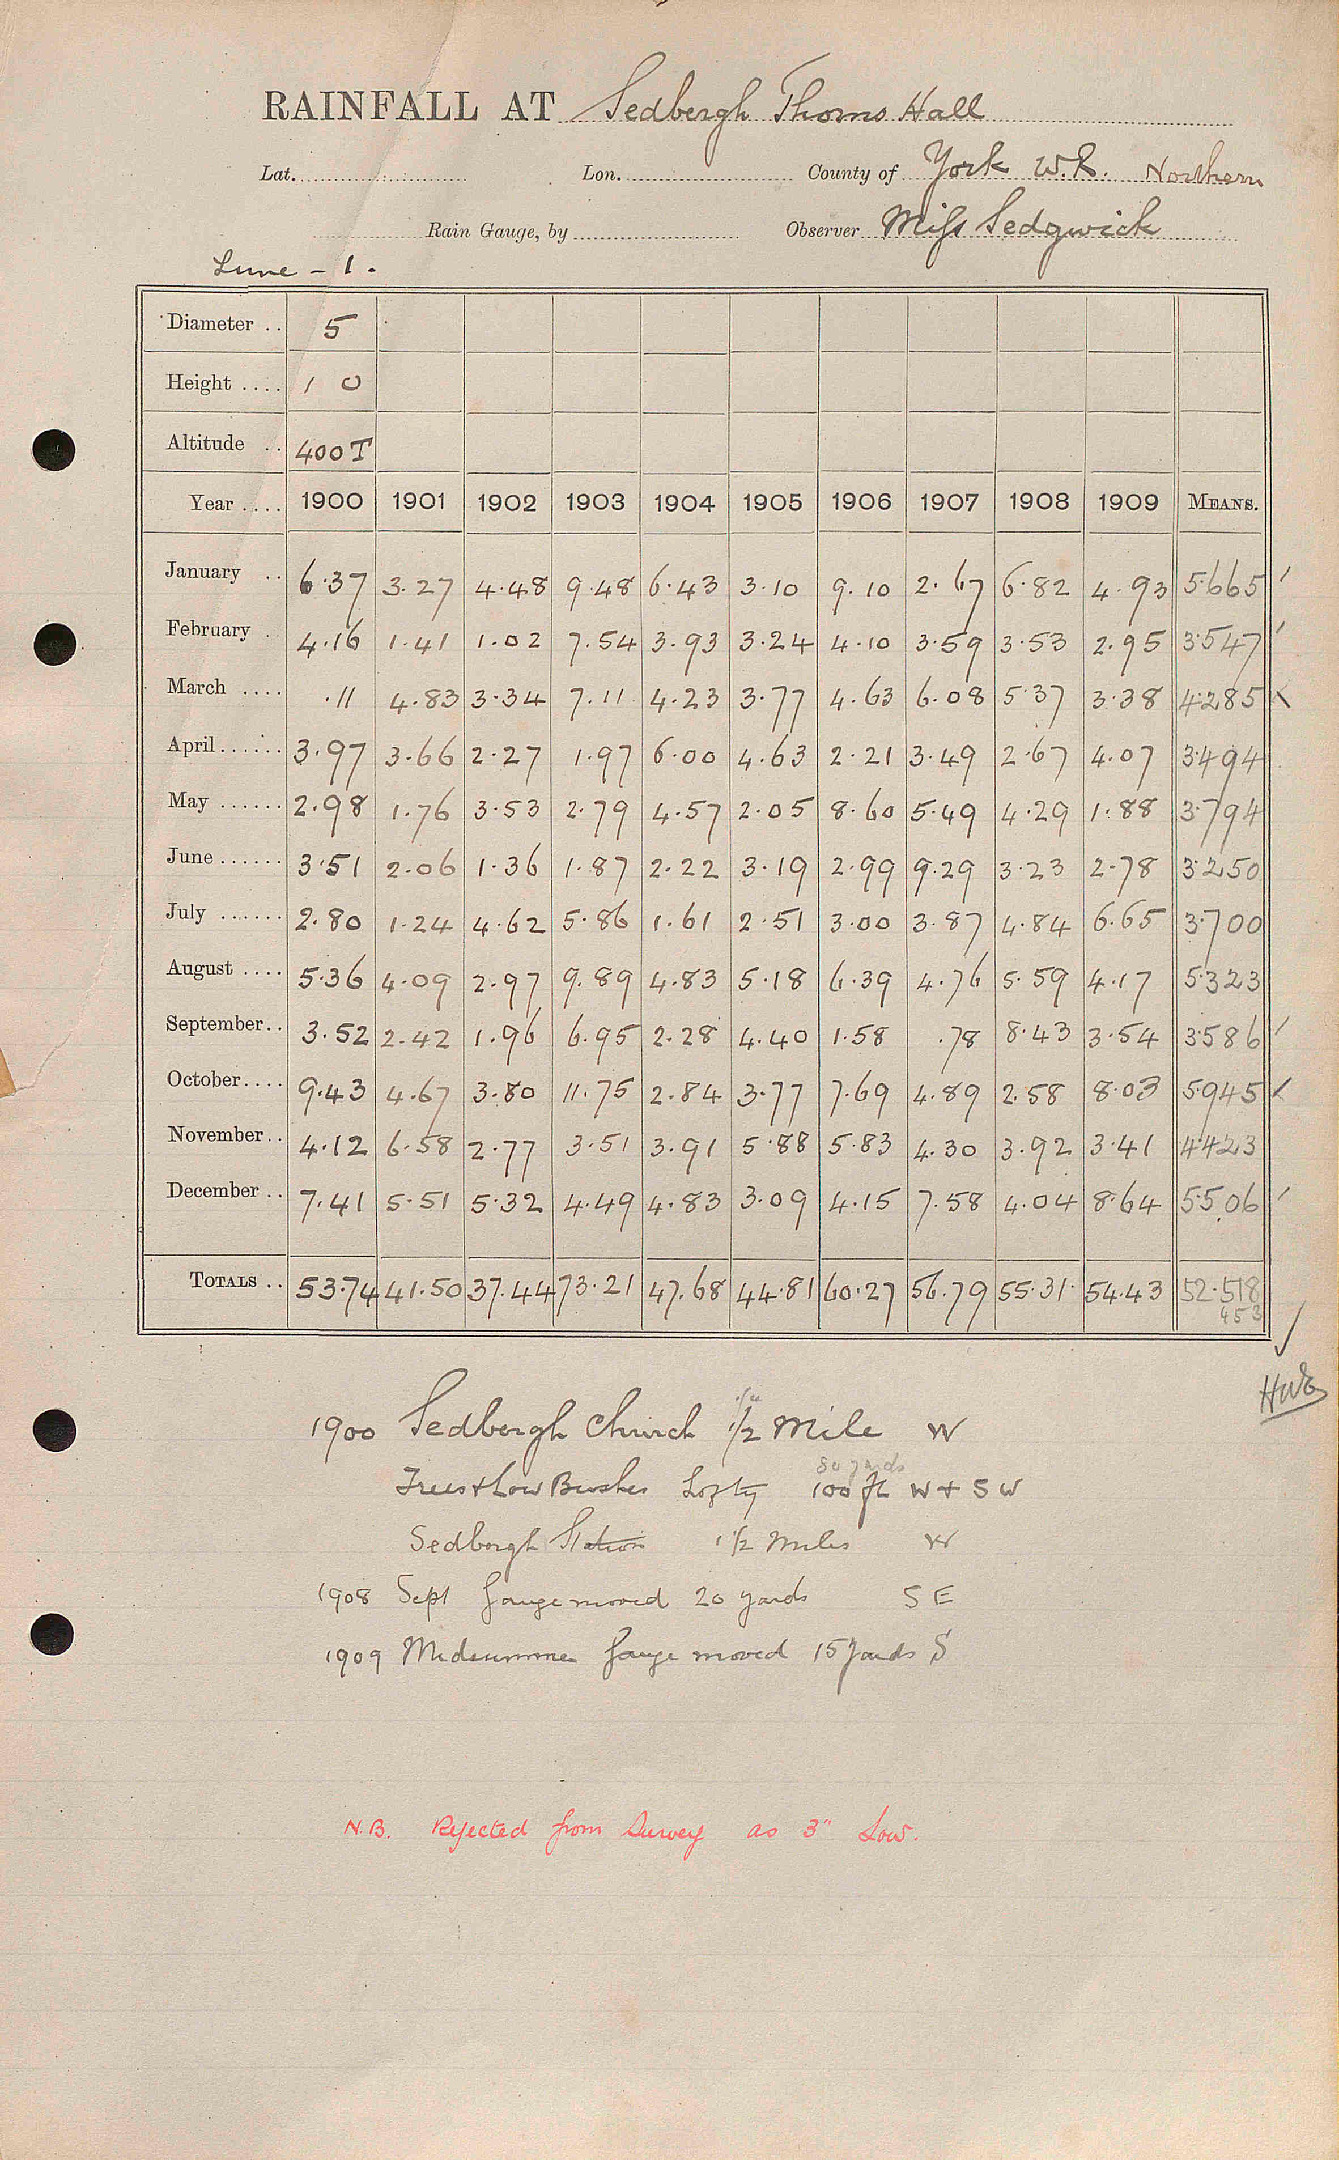 RAINFALL AT Sedbergh Thorns Hall
Lat. Lon. County of York W.R. Northern
Rain Gauge, by Observer Miss Sedgwick
Lune - 1.
Diameter .. 5
Height .... 1 0
Altitude .. 400 T
Year .... 1900 1901 1902 1903 1904 1905 1906 1907 1908 1909 MEANS.
January .. 6.37 3.27 4.48 9.48 6.43 3.10 9.10 2.67 6.82 4.93 5.665
February . 4.16 1.41 1.02 7.54 3.93 3.24 4.10 3.59 3.53 2.95 3.547
March .... .11 4.83 3.34 7.11 4.23 3.77 4.63 6.08 5.37 3.38 4.285
April ...... 3.97 3.66 2.27 1.97 6.00 4.63 2.21 3.49 2.67 4.07 3.494
May ...... 2.98 1.76 3.53 2.79 4.57 2.05 8.60 5.49 4.29 1.88 3.794
June ...... 3.51 2.06 1.36 1.87 2.22 3.19 2.99 9.29 3.23 2.78 3.250
July ...... 2.80 1.24 4.62 5.86 1.61 2.51 3.00 3.87 4.84 6.65 3.700
August .... 5.36 4.09 2.97 9.89 4.83 5.18 6.39 4.76 5.59 4.17 5.323
September.. 3.52 2.42 1.96 6.95 2.28 4.40 1.58 .78 8.43 3.54 3.586
October.... 9.43 4.67 3.80 11.75 2.84 3.77 7.69 4.89 2.58 8.03 5.945
November.. 4.12 6.58 2.77 3.51 3.91 5.88 5.83 4.30 3.92 3.41 4.423
December .. 7.41 5.51 5.32 4.49 4.83 3.09 4.15 7.58 4.04 8.64 5.506
TOTALS .. 53.74 41.50 37.44 73.21 47.68 44.81 60.27 56.79 55.31 54.43 52.518
453
1900 Sedbergh Church 1/2 Mile W
80 yards
Trees + Low Bushes Lofty 100 ft W + SW
Sedbergh Station 1 1/2 Miles W
1908 Sept Gauge moved 20 yards S E
1909 Midsummer Gauge moved 15 yards S
N.B. Rejected from Survey as 3" Low.